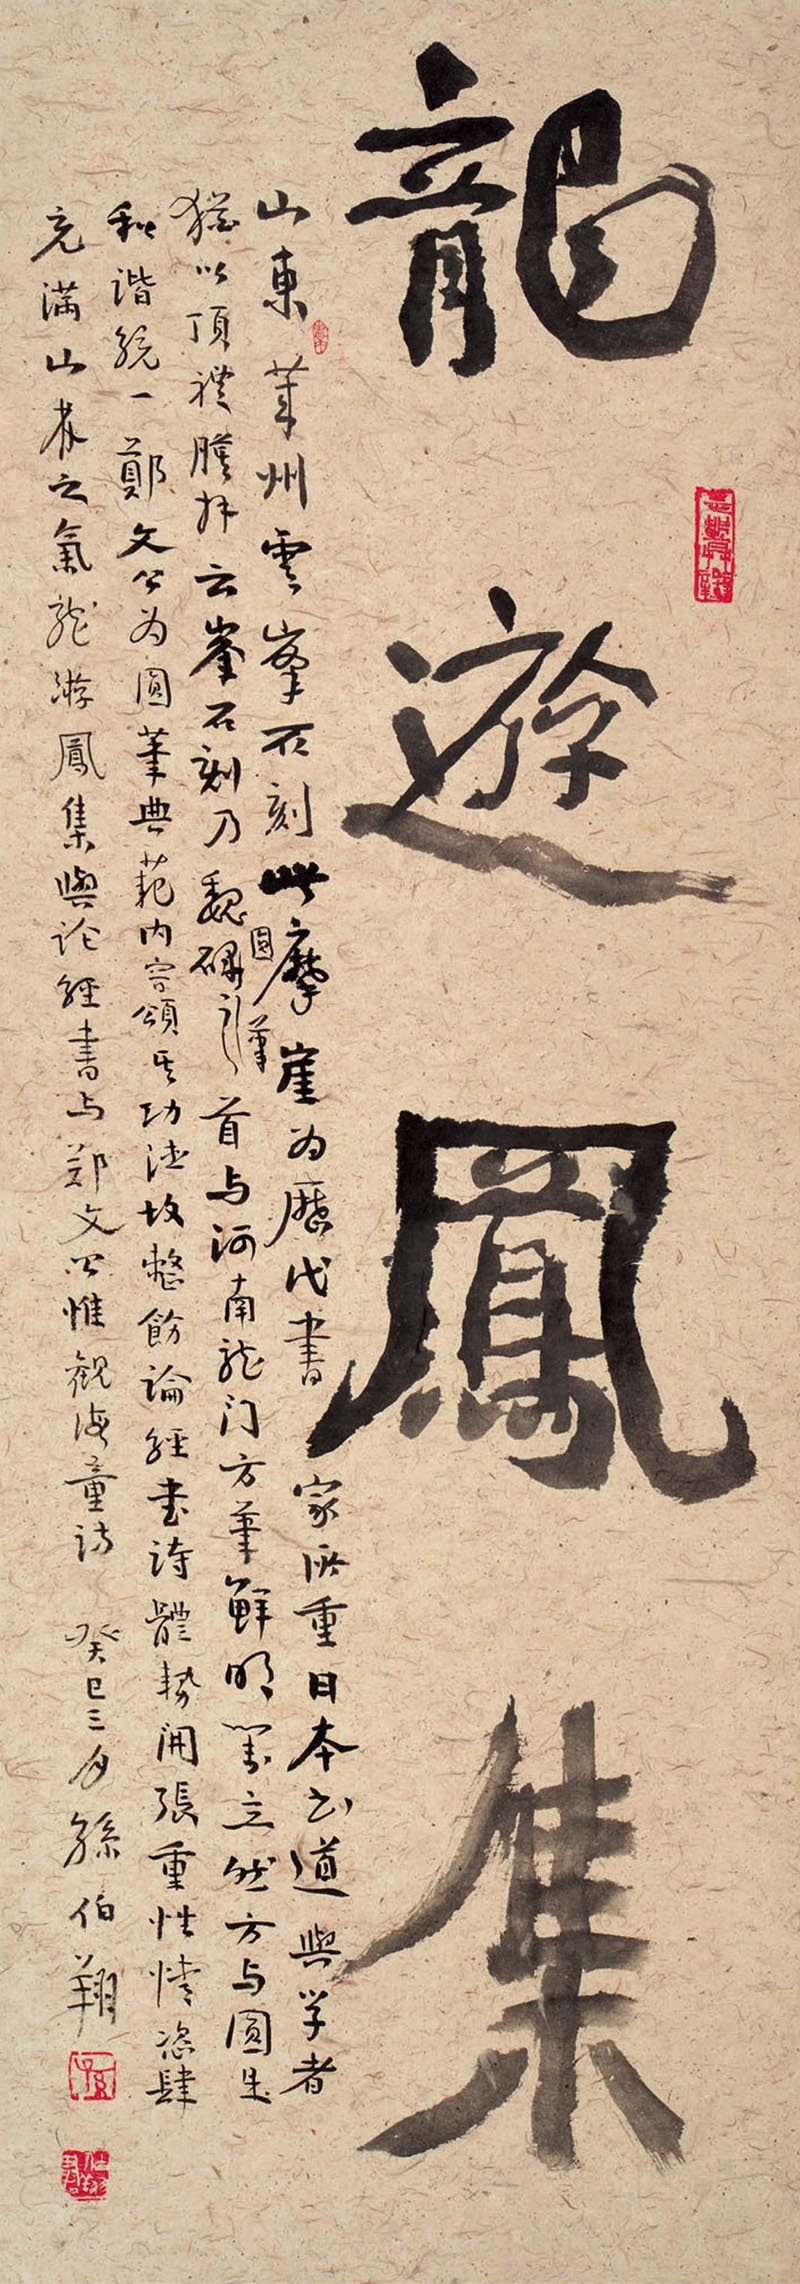 龍遊鳳集
山東莱州雲峯石刻此摩崖为歷代書家所重日本书道與学者
猶以頂禮膜拜云峯石刻乃魏碑圓筆之首与河南龙门方筆鮮明對立然方与圓是
和谐統一鄭文公为圓筆典範内容頌其功德故整飭論經書詩體势開張重性情恣肆
充满山林之氣龙游鳳集與论經書与郑文公惟观海童诗 癸巳三月孫伯翔